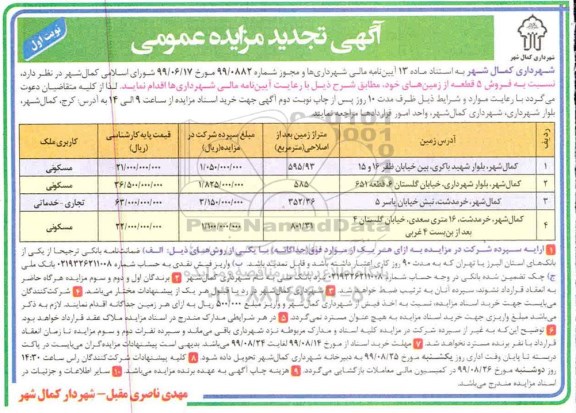 نوبت اول
آگهی تجدید مزایده عمومی
شهرداری کمال شهر
شهرداری کمال شهر به استناد ماده ۱۳ آیین‌نامه مالی شهرداری‌ها و مجوز شماره ۹۹/۰۸۸۲ مورخ ۹۹/۰۶/۱۷ شورای اسلامی کمال‌شهر در نظر دارد،
نسبت به فروش ۵ قطعه از زمین‌های خود، مطابق شرح ذیل با رعایت آیین‌نامه مالی شهرداری‌ها اقدام نماید. لذا از کلیه متقاضیان دعوت
می‌گردد با رعایت موارد و شرایط ذیل ظرف مدت ۱۰ روز پس از چاپ نوبت دوم آگهی جهت خرید اسناد مزایده از ساعت ۹ الی ۱۴ به آدرس: کرج، کمال‌شهر،
بلوار شهرداری، شهرداری کمال‌شهر، واحد امور قراردادها مراجعه نمایند.
ردیف آدرس زمین متراژ زمین بعد از اصلاحی(مترمربع) مبلغ سپرده شرکت در مزایده(ریال) قیمت پایه کارشناسی (ریال) کاربری ملک
۱ کمال‌شهر، بلوار شهید باکری، بین خیابان ظفر ۱۶ و ۱۵ ۵۹۵/۹۳ ۱/۰۵۰/۰۰۰/۰۰۰ ۲۱/۰۰۰/۰۰۰/۰۰۰ مسکونی
۲ کمال‌شهر، بلوار شهرداری، خیابان گلستان ۶، قطعه ۶۵۱ ۵۸۵ ۱/۸۲۵/۰۰۰/۰۰۰ ۳۶/۵۰۰/۰۰۰/۰۰۰ مسکونی
۳ کمال‌شهر، خرمدشت، نبش خیابان یاسر ۵ ۳۵۲/۴۶ ۳/۱۵۰/۰۰۰/۰۰۰ ۶۳/۰۰۰/۰۰۰/۰۰۰ تجاری - خدماتی
۴ کمال‌شهر، خرمدشت، ۱۶ متری سعدی، خیابان گلستان ۴
بعد از بن‌بست ۴ غربی ۸۸۱/۳۱ ۱/۱۰۰/۰۰۰/۰۰۰ ۲۲/۰۰۰/۰۰۰/۰۰۰ مسکونی
۱ ارایه سپرده شرکت در مزایده به ازای هر یک از موارد فوق جداگانه و با یکی از روش‌های ذیل: الف) ضمانتنامه بانکی ترجیحا از یکی از
بانک‌های استان البرز یا تهران که به مدت ۹۰ روز کاری اعتبار داشته
۲ برندگان اول و دوم و سوم مزایده هرگاه حاضر
به انعقاد قرارداد نشوند، سپرده آنان به ترتیب ضبط خواهد شد. ۳ شهرداری کمال‌شهر در رد یا قبول هر یک از پیشنهادات مختار می‌باشد. ۴ شرکت‌کنندگان
می‌بایست جهت خرید اسناد مزایده، نسبت به اخذ فیش از شهرداری کمال شهر و واریز مبلغ ۵۰۰/۰۰۰ ریال به ازای هر زمین جداگانه اقدام نمایند. لازم به ذکر
می‌باشد مبلغ واریزی جهت خرید اسناد مزایده به هیچ عنوان مسترد نمی‌گردد. ۵ در هر شرایطی مدارک مندرج در اسناد مزایده ملاک عقد قرارداد خواهد بود.
۶ توضیح این که به غیر از سپرده شرکت در مزایده کلیه اسناد و مدارک مربوطه نزد شهرداری باقی می‌ماند و سپرده نفرات دوم و سوم مزایده تا زمان انعقاد
قرارداد با نفر برنده مسترد نخواهد شد. ۷ مهلت خرید اسناد از مورخ ۹۹/۰۸/۱۴ لغایت ۹۹/۰۸/۲۴ می‌باشد. بدیهی است پیشنهادات مزایده‌گران می‌بایست در پاکت
دربسته تا پایان وقت اداری روز یکشنبه مورخ ۹۹/۰۸/۲۵ به دبیرخانه شهرداری کمال‌شهر تحویل داده شود. ۸ کلیه پیشنهادات شرکت‌کنندگان راس ساعت ۱۴:۳۰
روز دوشنبه مورخ ۹۹/۰۸/۲۶ در کمیسیون مالی معاملات بازگشایی می‌گردد. ۹ هزینه چاپ آگهی به عهده برنده مزایده می‌باشد. ۱۰ سایر اطلاعات و جزئیات در
اسناد مزایده مندرج می‌باشد.
مهدی ناصری مقبل - شهردار کمال شهر